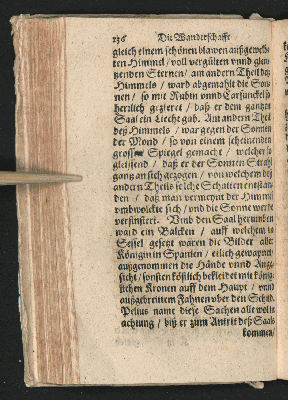 236 Die Wanderschafft
gleich einem schönen blawen außgewelb-
ten Himmel / voll vergülten vnnd glen-
tzenden Sternen / am andern Theil deß
Himmels / ward abgemahlt die Son-
nen / so mit Rubin vnnd Carfunckel so
herrlich gezieret / daß er dem gantzen
Saal ein Liecht gab. Am andern Theil
deß Himmels / war gegen der Sonnen
der Mond / so von einem scheinenden
grossen Spiegel gemacht / welcher so
gleissend / daß er der Sonnen Stralen
gantz an sich gezogen / von welchem deß
andern Theils solche Schatten entstan-
den / daß man vermeynt der Himmel
vmbwölckte sich / vnd die Sonne werde
verfinstert. Vmb den Saal herumben
ward ein Balcken / auff welchem in
Sessel gesetzt waren die Bilder aller
Königin in Spanien / etlich gewapnet
außgenommen die Hände vnnd Ange-
sicht / sonsten köstlich bekleidet mit könig-
lichen Kronen auff dem Haupt / vnnd
außgebreitem Fahnen vber den Schildt.
Pelius name diese Sachen alle wol in
achtung / biß er zum Antrit deß Saals
kommen /